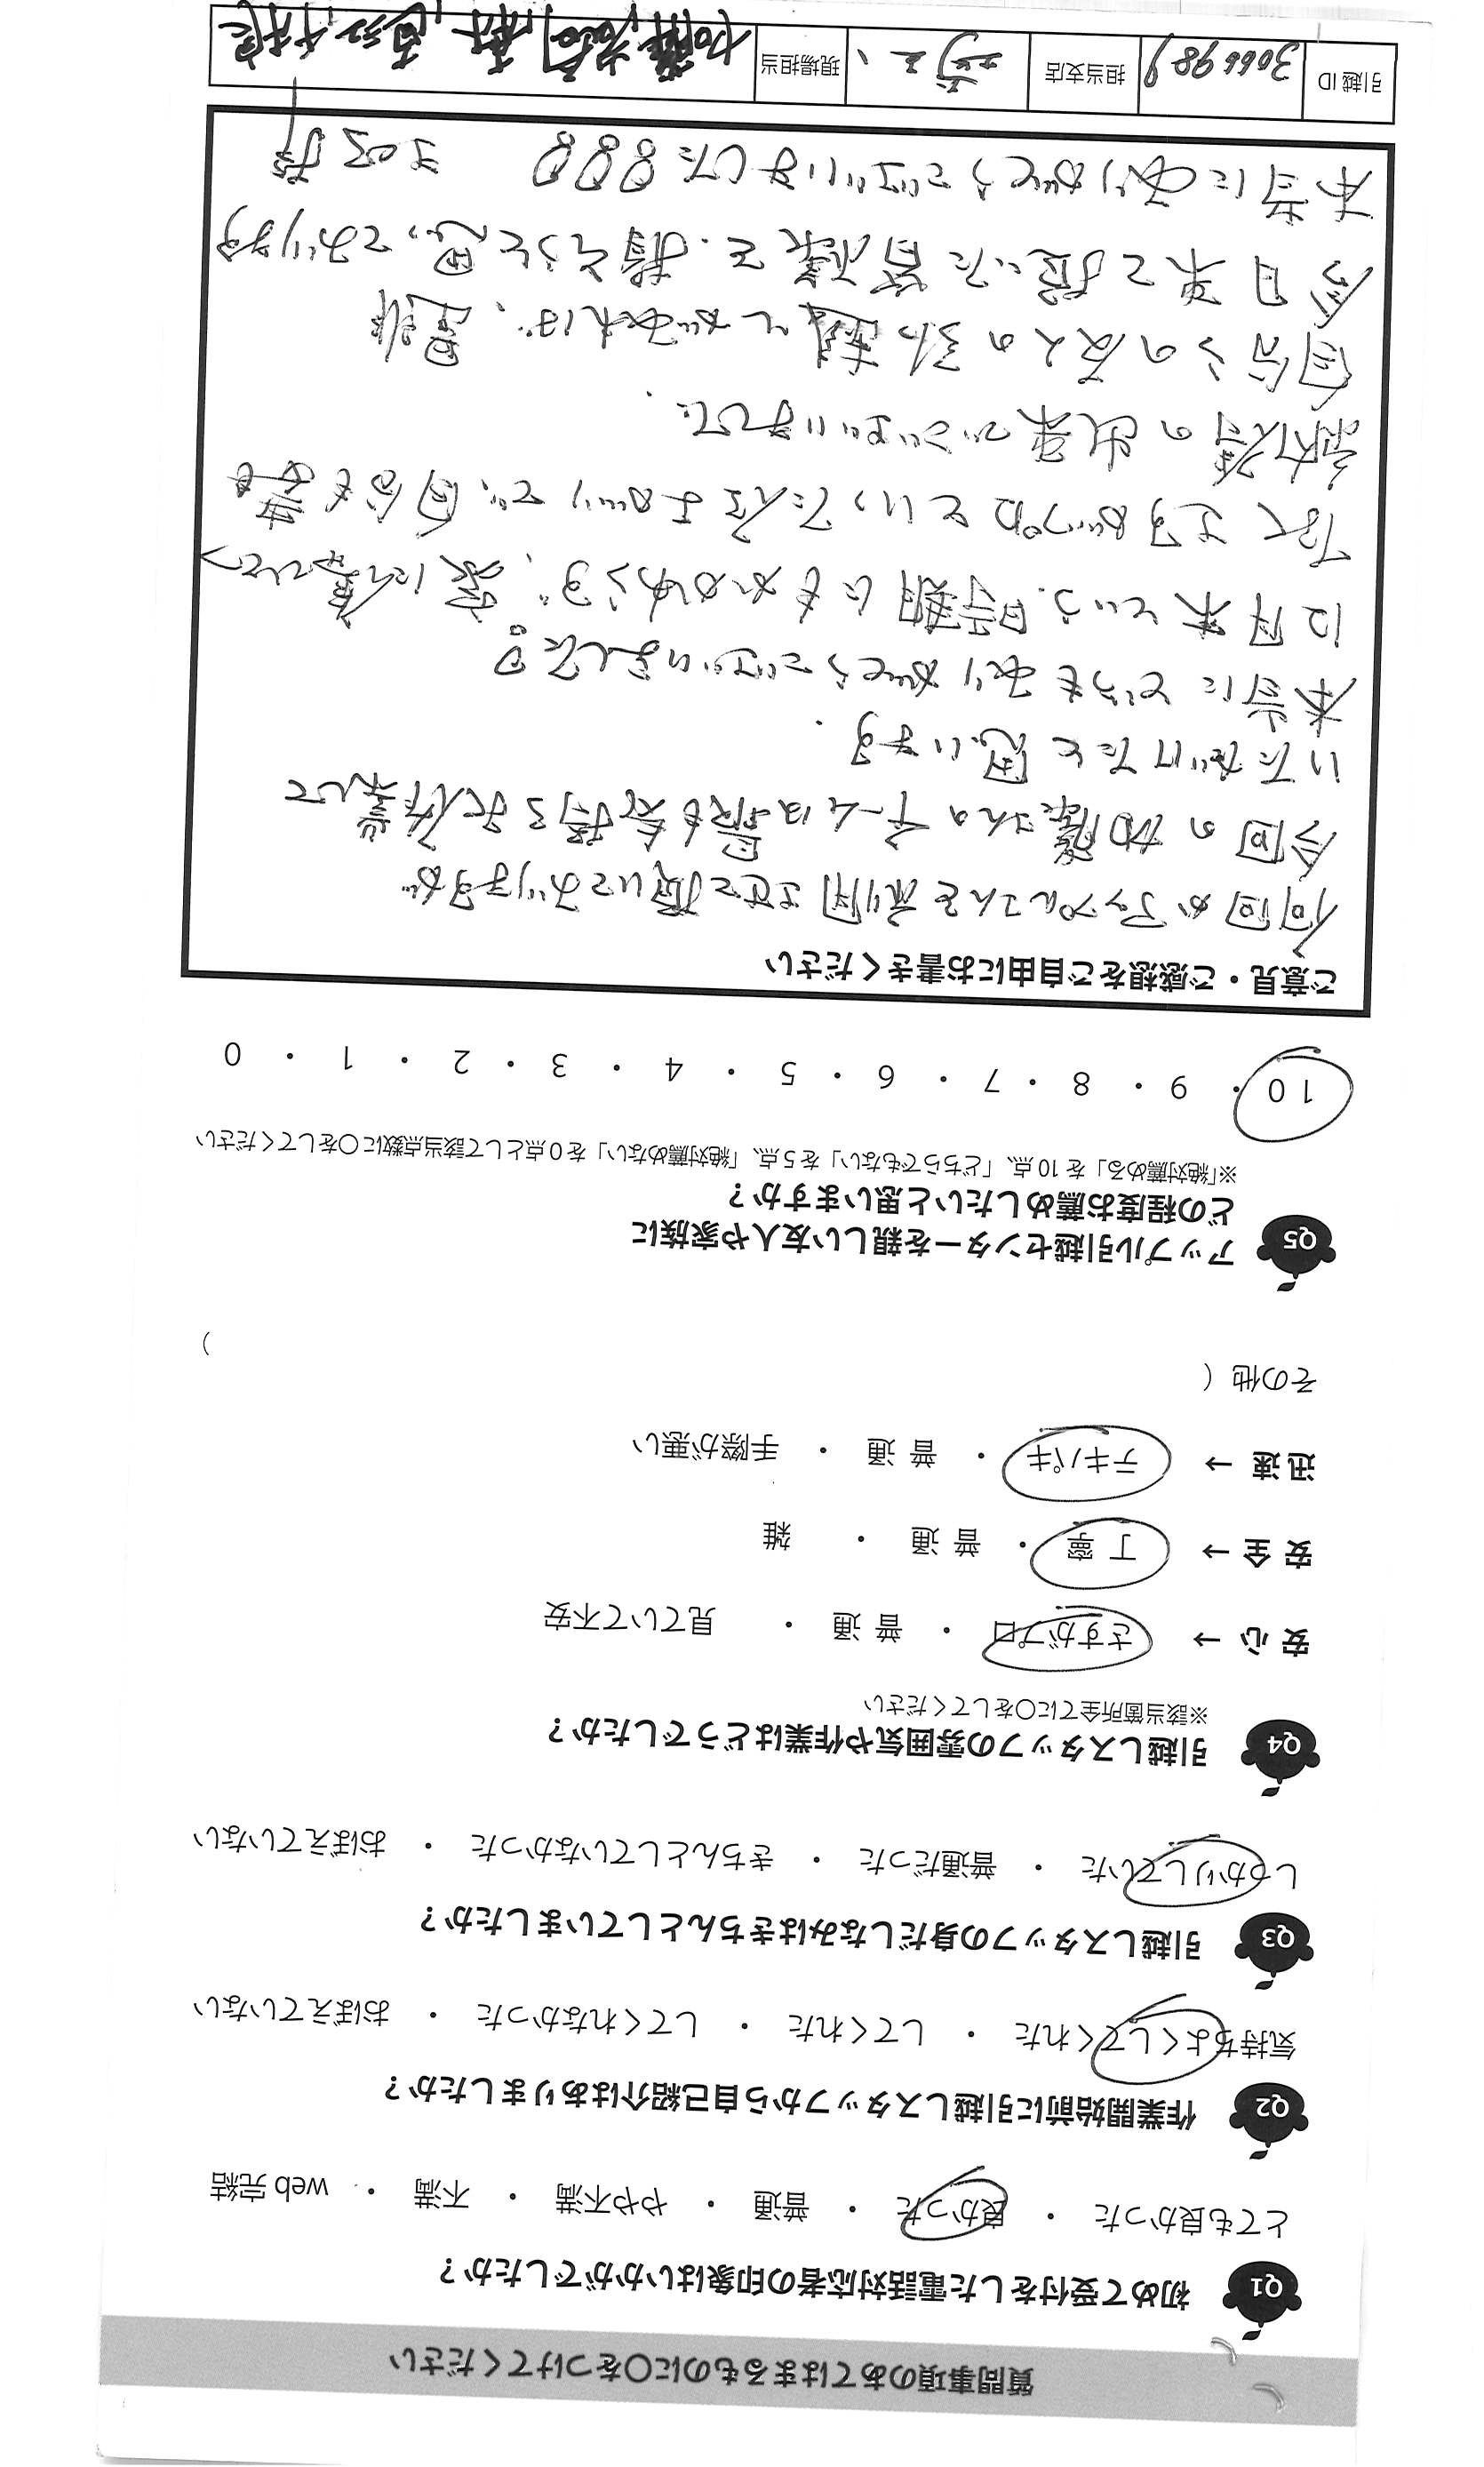 質問事項のあてはまるものに〇をつけてください
Q1 初めて受付をした電話対応者の印象はいかがでしたか？
とても良かった ・ 良かった ・ 普通 ・ やや不満 ・ 不満 ・ web 完結
Q2 作業開始前に引越しスタッフから自己紹介はありましたか？
気持ちよくしてくれた ・ してくれた ・ してくれなかった ・ おぼえていない
Q3 引越しスタッフの身だしなみはきちんとしていましたか？
しっかりしていた ・ 普通だった ・ きちんとしていなかった ・ おぼえていない
Q4 引越しスタッフの雰囲気や作業はどうでしたか？
※該当箇所全てに〇をしてください
安心 → さすがプロ ・ 普通 ・ 見ていて不安
安全 → 丁寧 ・ 普通 ・ 雑
迅速 → テキパキ ・ 普通 ・ 手際が悪い
その他（ ）
Q5 アップル引越センターを親しい友人や家族に
どの程度お薦めしたいと思いますか？
※「絶対薦める」を 10 点、「どちらでもない」を 5 点、「絶対薦めない」を 0 点として該当点数に〇をしてください
10 ・ 9 ・ 8 ・ 7 ・ 6 ・ 5 ・ 4 ・ 3 ・ 2 ・ 1 ・ 0
ご意見・ご感想をご自由にお書きください
何回かアップルさんを利用させて頂いておりますが
今回の加藤さんのチームは最も気持ろ良く作業して
いただけたと思います.
本当にどうもありがとうございました!
12月末という.時期にもかかわらず、家に傷
なくさすがプロといった仕上がりで、自分も
納得の出来でございました.
自分らの友人の引越しがあれば、是非
今日来て頂いた皆様を.推そうと思っております
本当にありがとうございました!!!
引越 ID 3066989 担当支店 現場担当